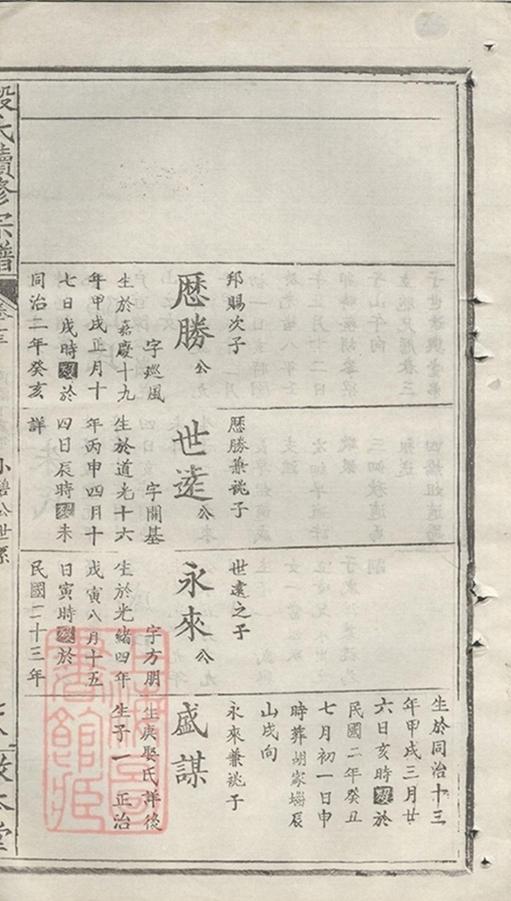 邦賜次子
厯勝公
字巡風
生於嘉慶十九
年甲戌正月十
七日戌時殁於
同治二年癸亥
厯勝兼祧子
世遠公
字開基
生於道光十六
年丙申四月十
四日辰時殁未
詳
世遠之子
永來公
字方朋
生於光緒四年
戊寅八月十五
日寅時殁於
民國二十三年
生於同治十三
年甲戌三月廿
六日亥時殁於
民國二年癸丑
七月初一日申
時葬胡家墈辰
山戌向
永來兼祧子
盛謀
生庚娶氏詳後
生子一 正治
段氏續修宗譜
公世系
本堂